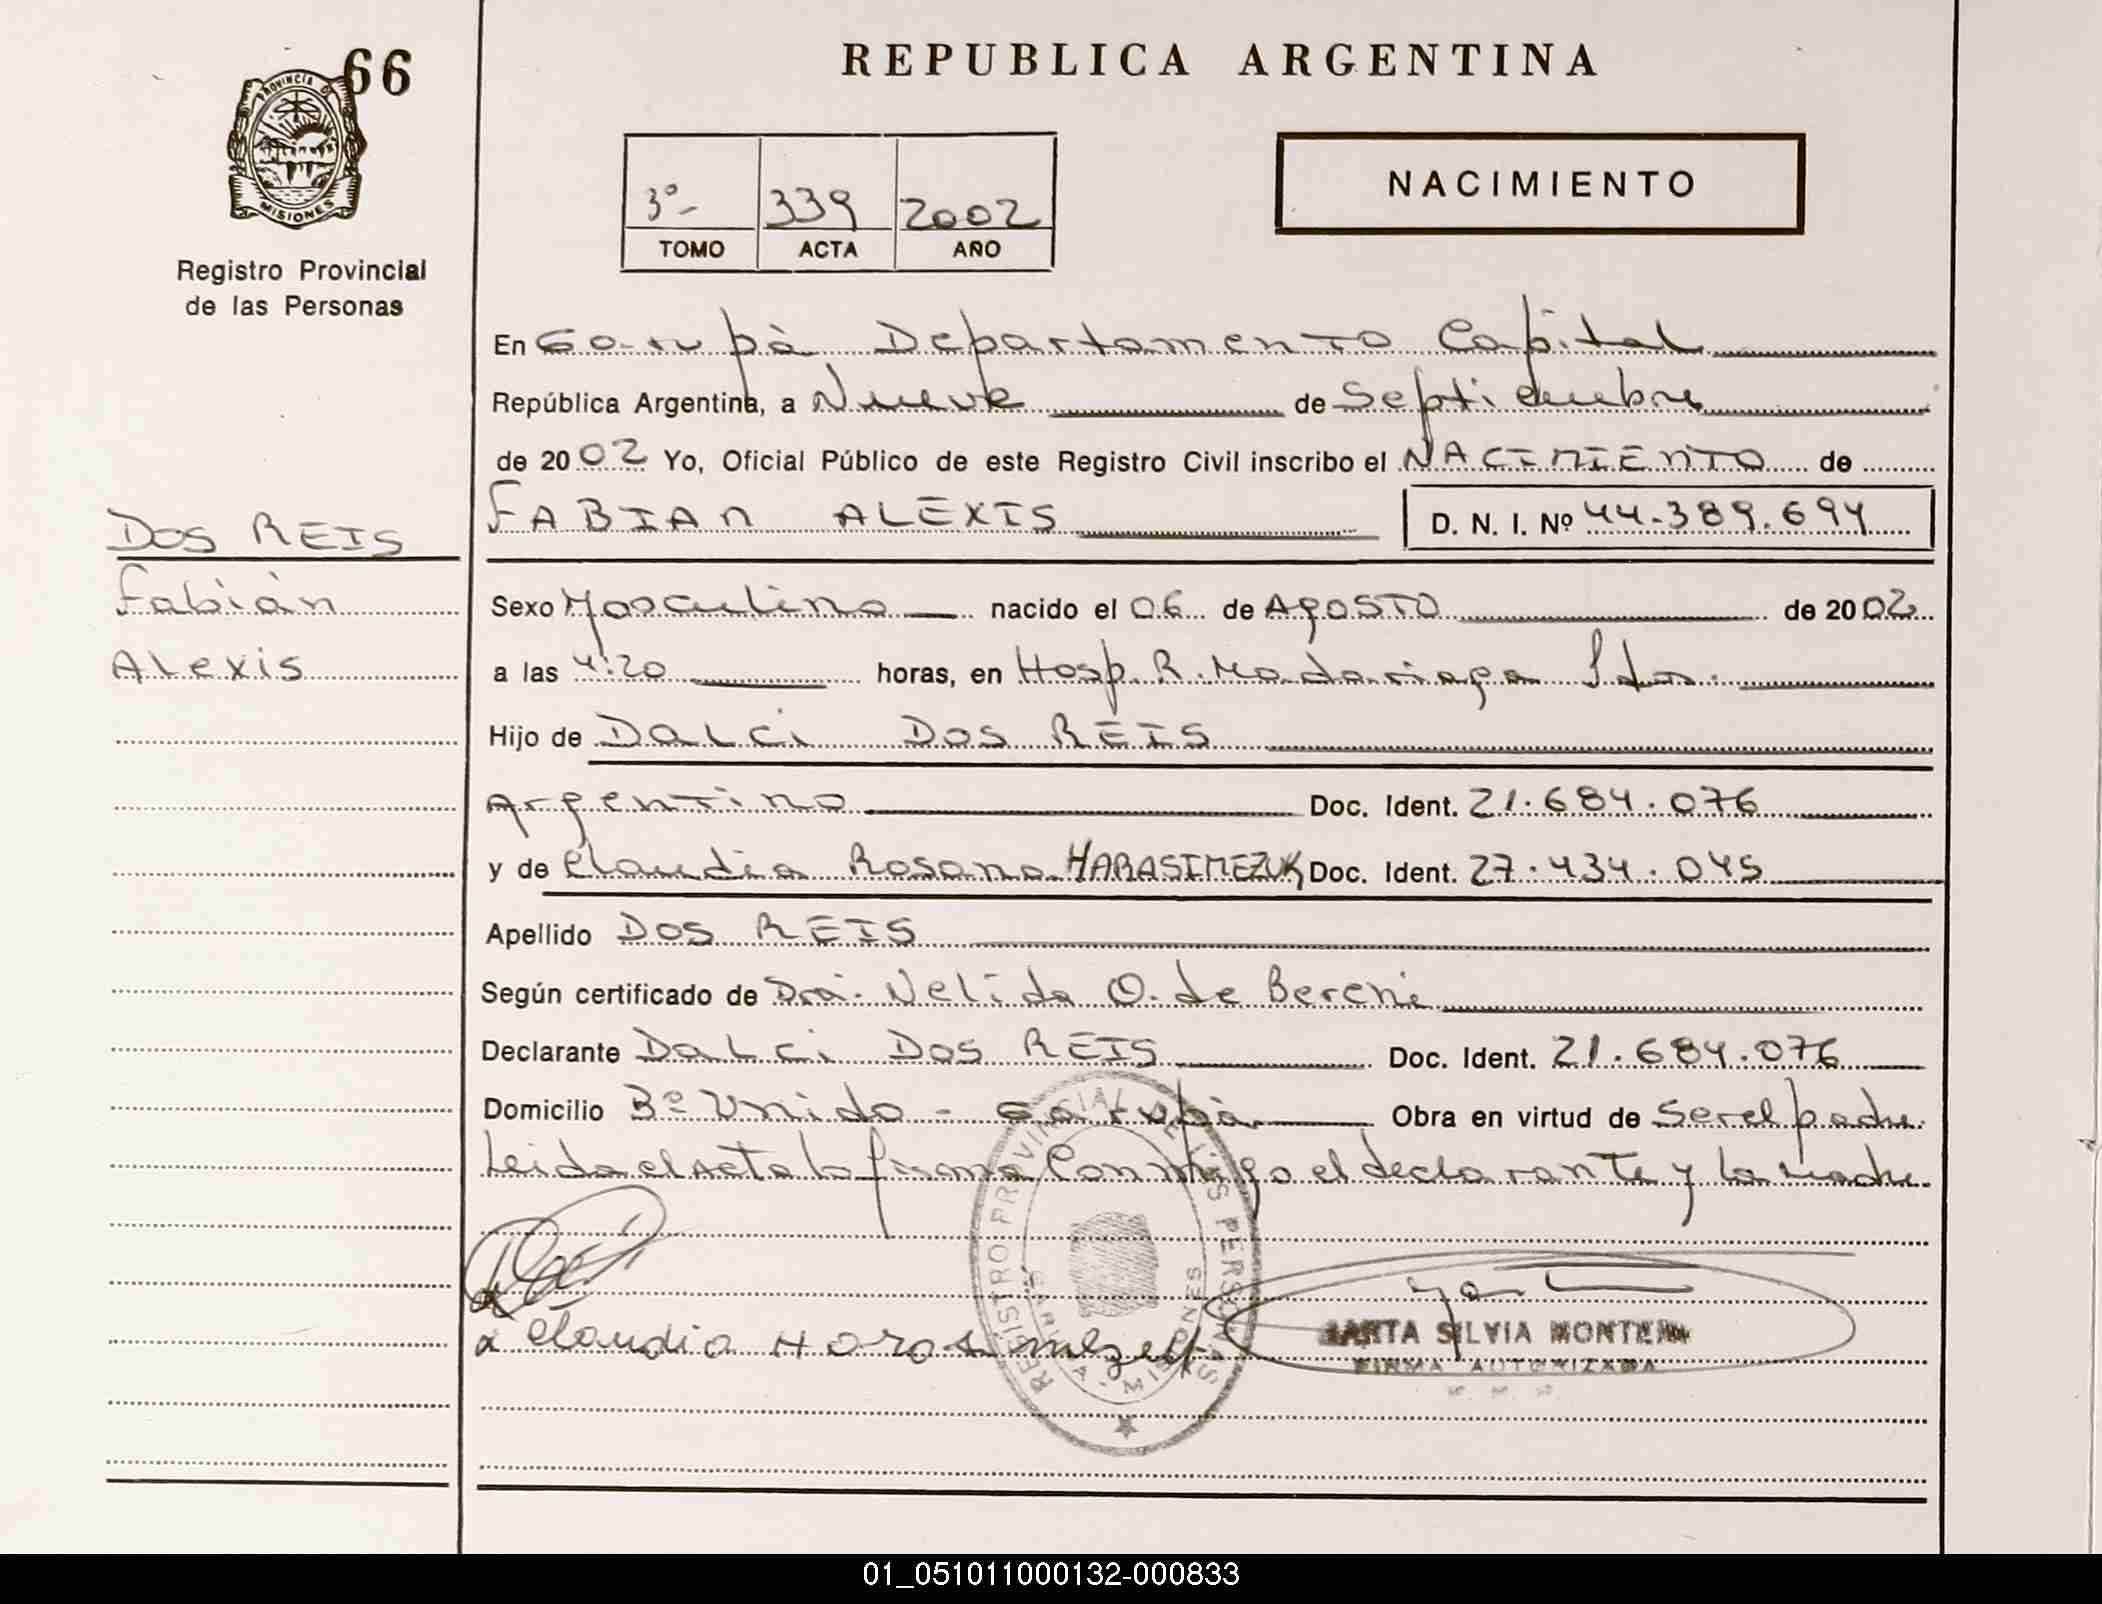 66
PROVINCIA DE
MISIONES
Registro Provincial
de las Personas
REPUBLICA ARGENTINA
3º- 339 2002
TOMO ACTA AÑO
NACIMIENTO
En Garupà Departamento Capital
República Argentina, a Nueve de Septiembre
de 2002 Yo, Oficial Público de este Registro Civil inscribo el NACIMIENTO de
FABIAN ALEXIS D. N. I. Nº 44.389.694
DOS REIS
Fabián
Alexis
Sexo Masculino nacido el 06 de AgOSTO de 2002
a las 4:20 horas, en Hosp. R. Madariaga
Hijo de DaLci Dos REIS
Argentino Doc. Ident. 21.684.076
y de Claudia Rosana HARASIMEZUK Doc. Ident. 27.434.045
Apellido DOS REIS
Según certificado de Dra. Nelida O. de
Declarante DaLci Dos REIS Doc. Ident. 21.684.076
Domicilio Bº Unido - Garupà Obra en virtud de Ser el padre
Leida el Acta la firma Conmigo el declarante y la madre
REGISTRO PROVINCIAL DE LAS PERSONAS
MISIONES
Claudia
SILVIA
FIRMA AUTORIZADA
01_051011000132-000833